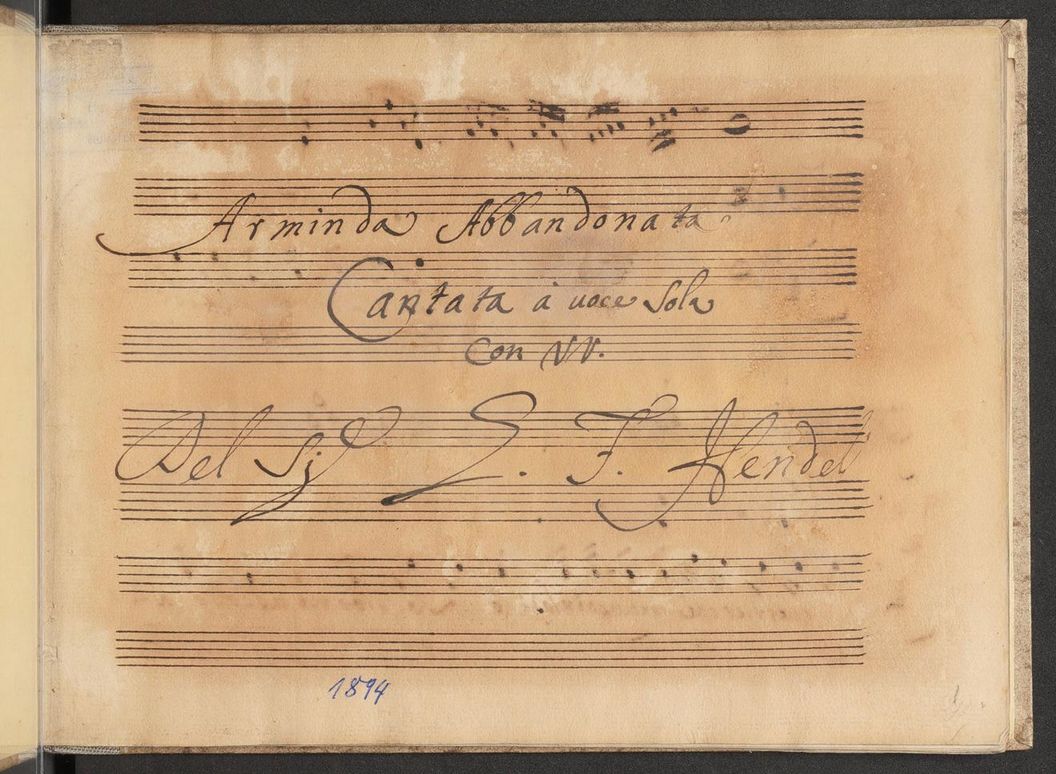 Arminda Abbandonata.
Cantata à voce Sola
Con VV.
Del Sigr G. F. Hendel
1894